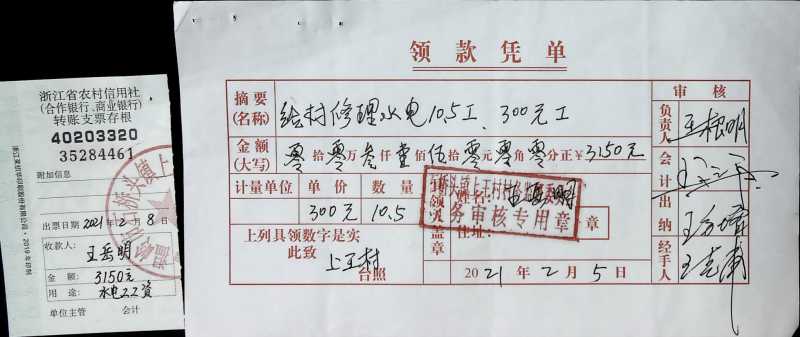 浙江省农村信用社
(合作银行、商业银行)
转账支票存根
40203320
35284461
附加信息
出票日期 2021年2月8日
收款人:
王岳明
金 额: 3150元
用 途: 水电工工资
单位主管 会计
领款凭单
摘要
(名称)
给村修理水电10.5工、300元工
金额
(大写)
零拾零万叁仟壹佰伍拾零元零角零分正¥3150元
计量单位 单价 数量
300元 10.5
上列具领数字是实
此致
上王村
台照
领
盖
章
姓名:
住址:
章
务审核专用章
2021年2月5日
审核
负责人
会计
出纳
经手人